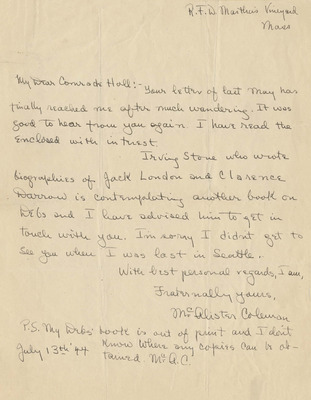 R.F.D. Martha's Vineyard
Mass
My Dear Comrade Hall:- Your letter of last May has
finally reached me after much wandering. It was
good to hear from you again. I have read the
enclosed with intrest.
Irving Stone who wrote
biographies of Jack London and Clarence
Darrow is contemplating another book on
Debs and I have advised him to get in
touch with you. I'm sorry I didn't get to
see you when I was last in Seattle.
With best personal regards, I am,
Fraternally yours,
McAlister Coleman
P.S. My Debs' book is out of print and I don't
know where any copies can be ob-
July 13th '44 tained McA.C.